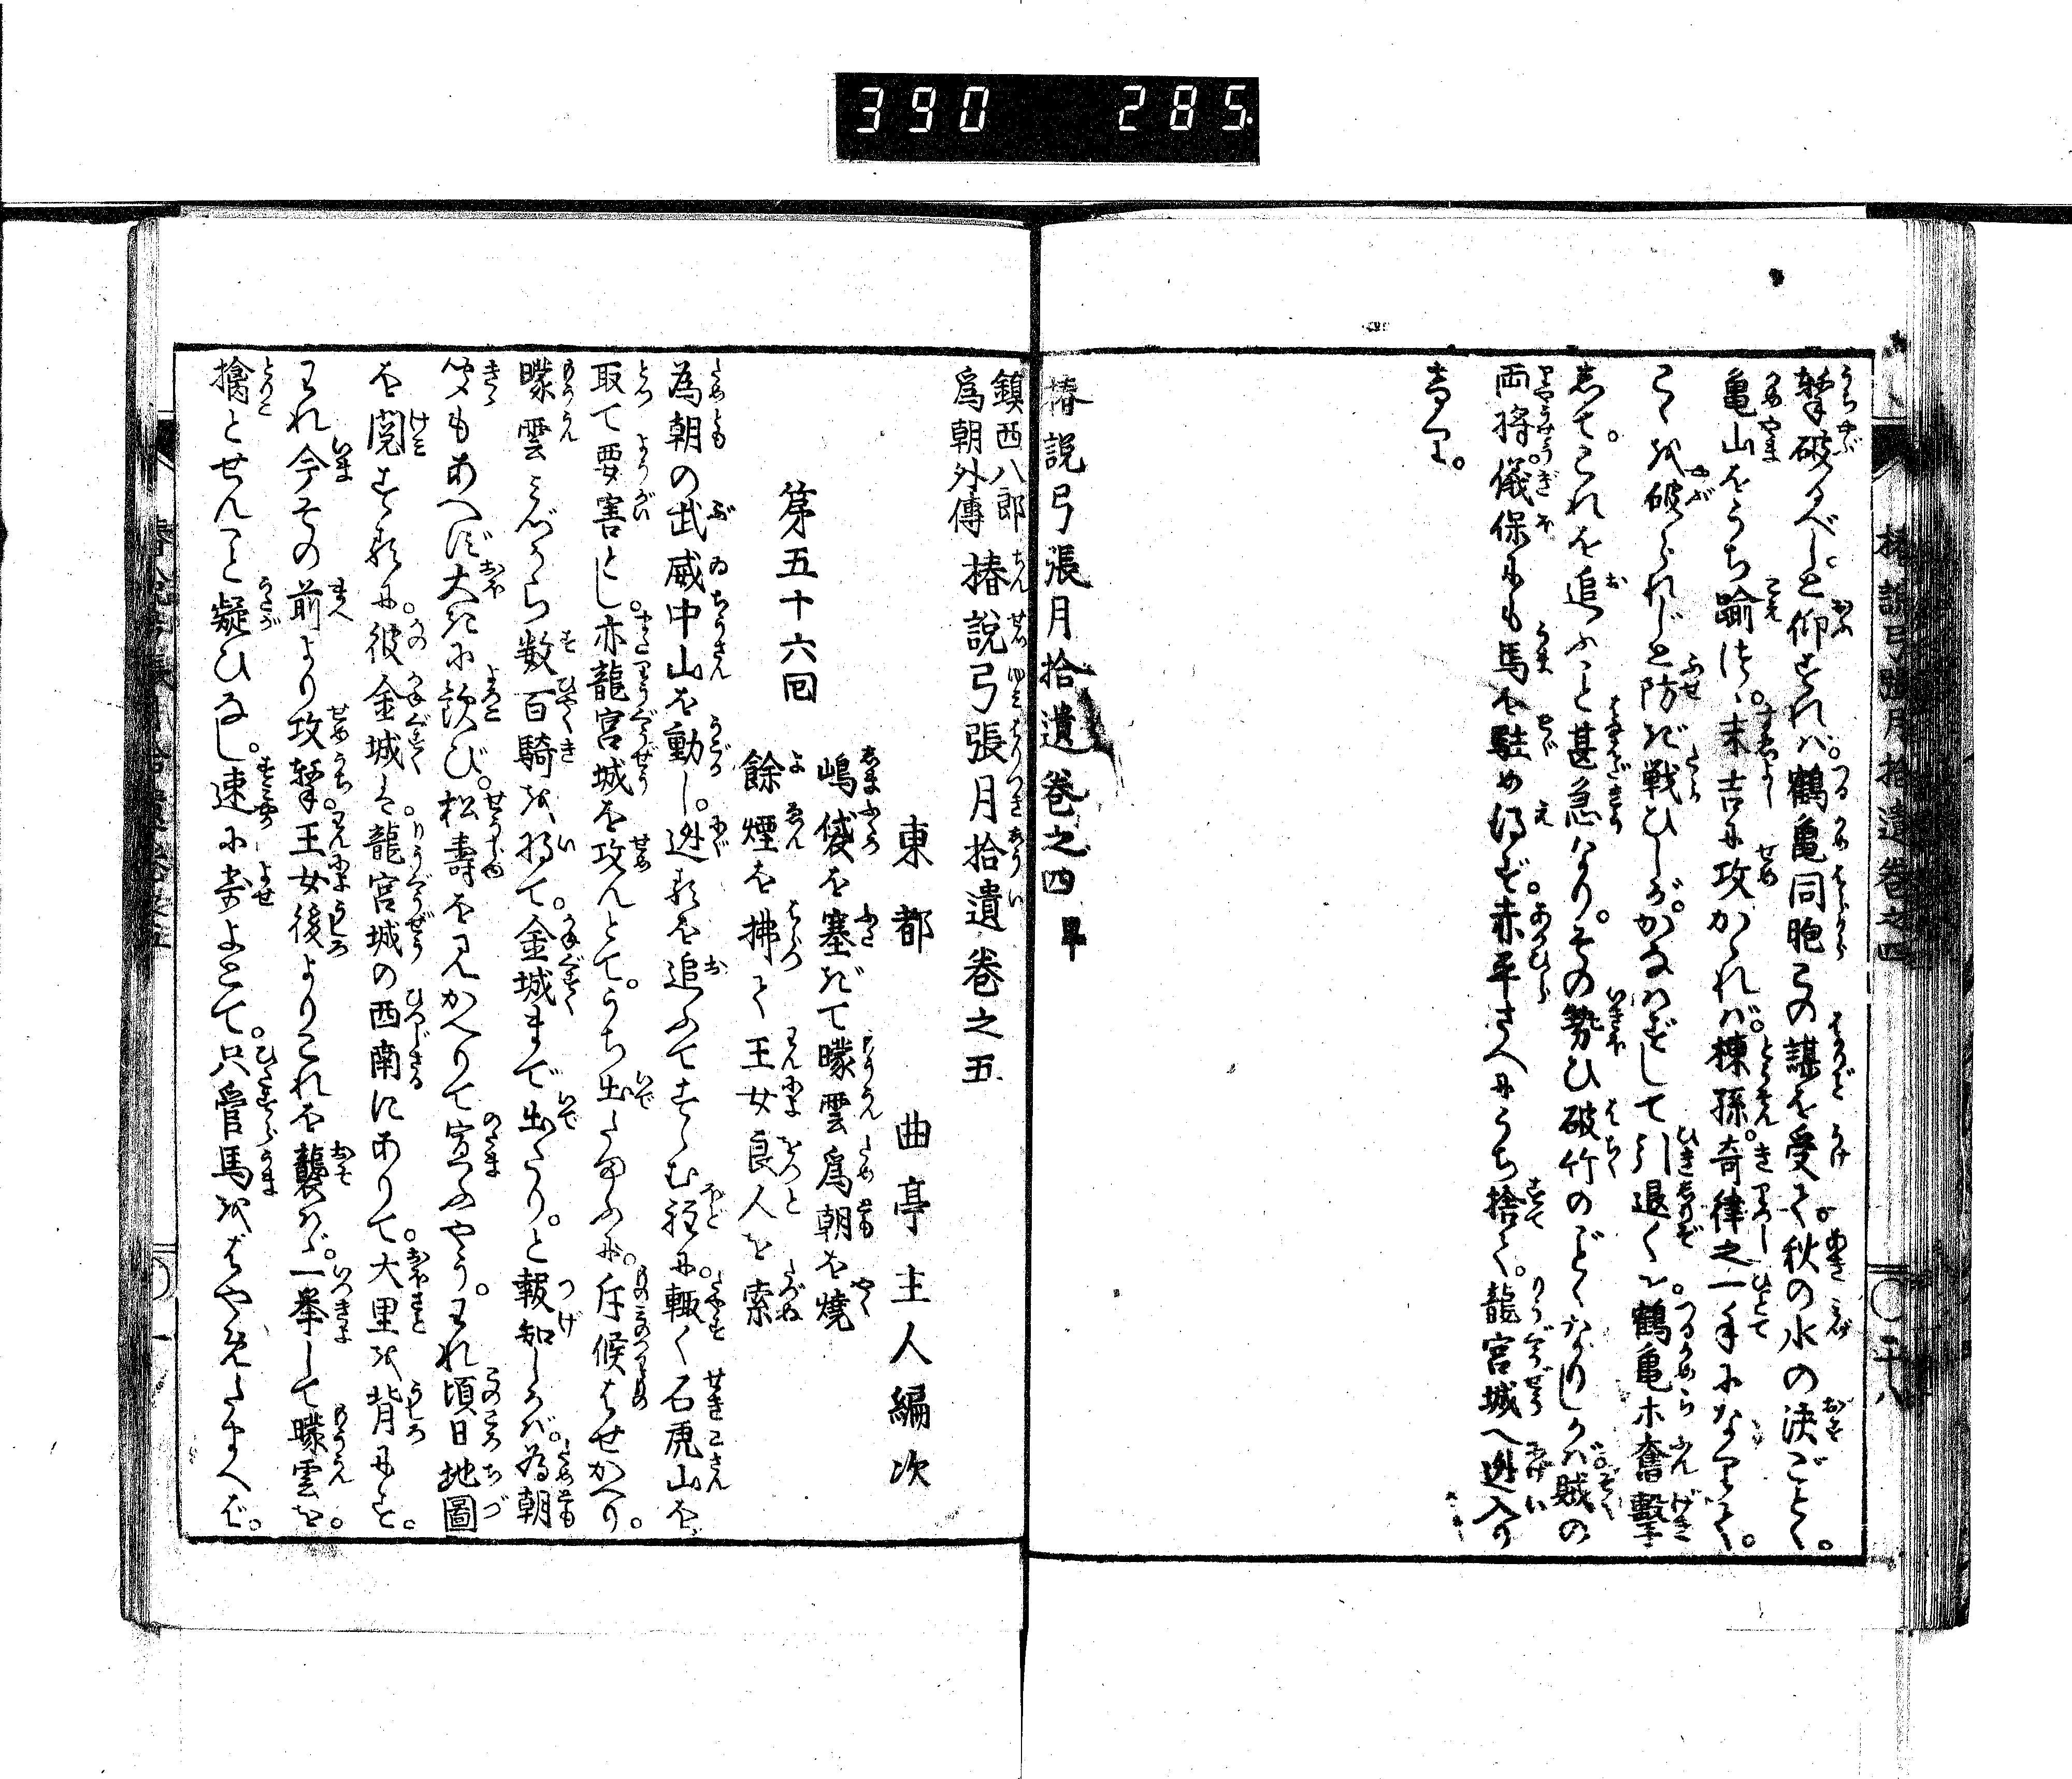 390 285.
撃破るべしと仰すれば。鶴亀同胞この謀を受て。秋の水の决ごとく。
亀山をうち踰つゝ。末吉に攻かゝれば。棟孫。奇律之一手になりて。
こゝを破られじと防ぎ戦ひしが。かなはずして引退くを。鶴亀ホ奮撃
して。これを追ふこと甚急なり。その勢ひ破竹のごとくなりしかば賊の
両将。儀保にも馬を駐め得ず。赤平さへにうち捨て。龍宮城へ迯入り
けり。
椿説弓張月拾遺巻之四 畢
椿説弓張月拾遺巻之四 二十八
鎮西八郎
為朝外傳 椿説弓張月拾遺巻之五
東都 曲亭主人編次
第五十六回
嶋袋を塞ぎて曚雲為朝を燒
餘煙を拂て王女良人を索
為朝の武威中山を動し。迯るを追ふてすゝむ程に。輙く石虎山を
取て要害とし。亦龍宮城を攻んとて。うち出たまふに。斥候はせかへり。
曚雲みづから数百騎を将て。金城まで出たり。と報知しかば。為朝
聞もあへず大きに歓び。松壽を見かへりて宣ふやう。われ頃日地圖
を閲するに。彼金城は龍宮城の西南にありて。大里を背にす。
われ今その前より攻撃。王女後よりこれを襲はゞ。一擧して曚雲を。
擒とせんこと疑ひなし。速に寄よとて。只管馬をはやめたまへば。